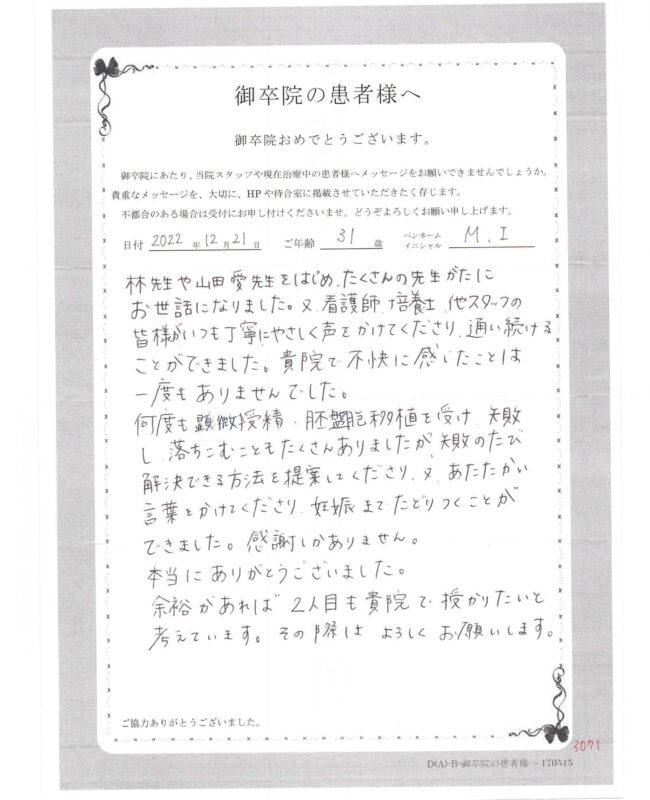 御卒院の患者様へ
御卒院おめでとうございます。
御卒院にあたり、当院スタッフや現在治療中の患者様へメッセージをお願いできませんでしょうか。
貴重なメッセージを、大切に、HPや待合室に掲載させていただきたく存じます。
不都合のある場合は受付にお申し付けくださいませ。どうぞよろしくお願い申し上げます。
日付 2022 年 12 月 21 日 ご年齢 31 歳 ペンネーム イニシャル M.I
林先生や山田愛先生をはじめ、たくさんの先生がたに
お世話になりました。又、看護師、培養士、他スタッフの
皆様がいつも丁寧にやさしく声をかけてくださり、通い続ける
ことができました。貴院で不快に感じたことは
一度もありませんでした。
何度も顕微授精、胚盤胞移植を受け、失敗
し、落ちこむこともたくさんありましたが、失敗のたび
解決できる方法を提案してくださり、又、あたたかい
言葉をかけてくださり、妊娠までたどりつくことが
できました。感謝しかありません。
本当にありがとうございました。
余裕があれば2人目も貴院で授かりたいと
考えています。その際はよろしくお願いします。
ご協力ありがとうございました。
3071
D(A)-B-御卒院の患者様へ-170515